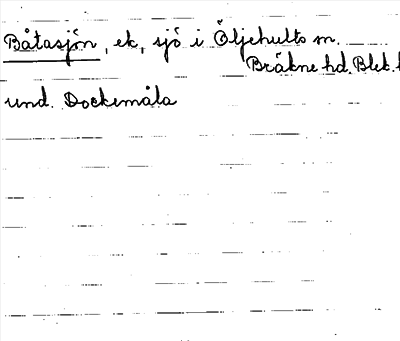 Båtasjön, ek, sjö i Öljehults sn.
Bräkne hd. Blek.
und. Dockemåla